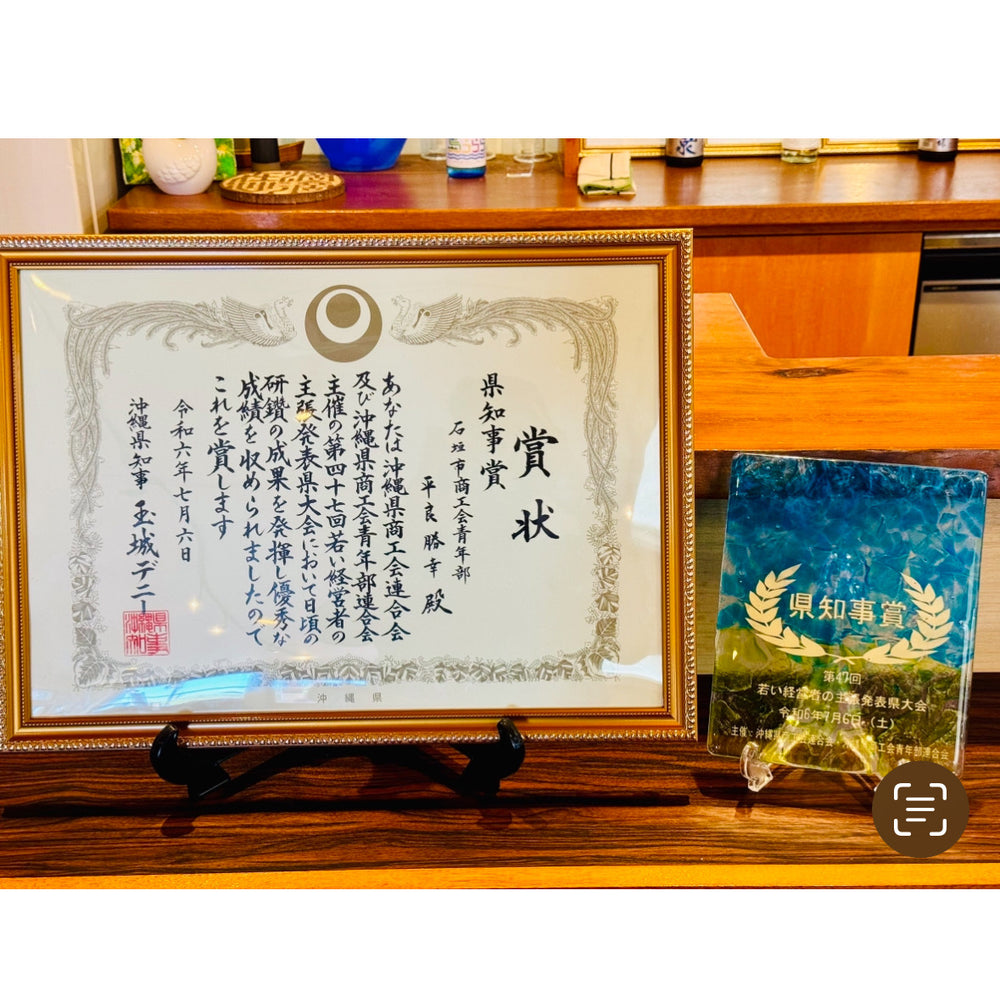 賞状
県知事賞
石垣市商工会青年部
平良勝幸 殿
あなたは沖縄県商工会連合会
及び沖縄県商工会青年部連合会
主催の第四十七回若い経営者の
主張発表県大会において日頃の
研鑽の成果を発揮し優秀な
成績を収められましたので
これを賞します
令和六年七月六日
沖縄県知事 玉城デニー
沖縄県
県知事賞
第47回
若い経営者の主張発表県大会
令和6年7月6日(土)
主催:沖縄県商工会連合会 青年部連合会
泉